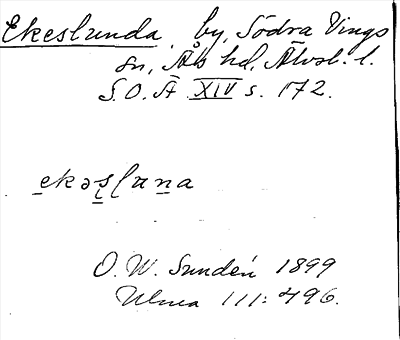 Ekeslunda by, Södra Vings
sn, Ås hd, Älvsb. l.
S.O.Ä XIV s. 172.
ekəslana
O. W. Sundén 1899
Ulma 111:496.